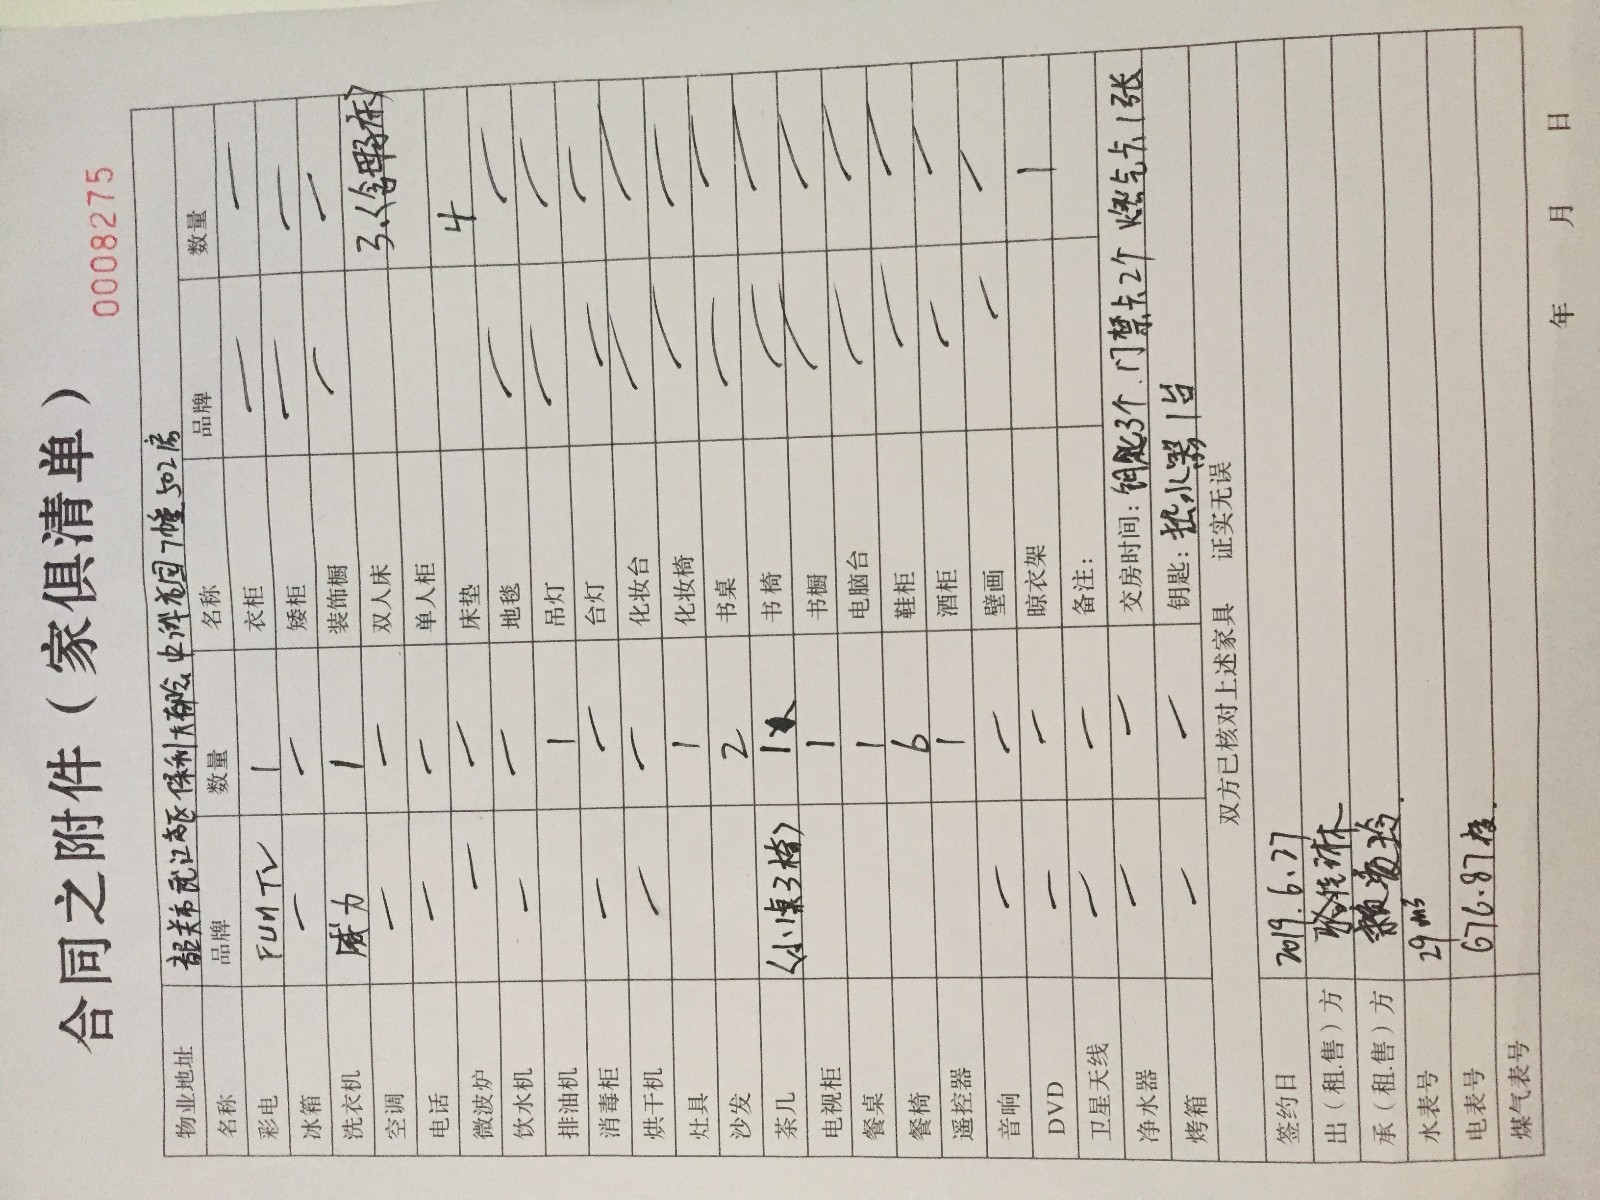 合同之附件（家俱清单）
0008275
物业地址 韶关市武江区保利 7幢502房
名称 品牌 数量 名称 品牌 数量
彩电 FUNTV 1 衣柜 — —
冰箱 — — 矮柜 — —
洗衣机 威力 1 装饰橱 — —
空调 — — 双人床 3（含母子床）
电话 — — 单人柜
微波炉 — — 床垫 4
饮水机 — — 地毯 — —
排油机 1 吊灯 — —
消毒柜 — — 台灯 — —
烘干机 — — 化妆台 — —
灶具 1 化妆椅 — —
沙发 2 书桌 — —
茶几 （小桌3椅） 1 书椅 — —
电视柜 1 书橱 — —
餐桌 1 电脑台 — —
餐椅 6 鞋柜 — —
遥控器 1 酒柜 — —
音响 — — 壁画 — —
DVD — — 晾衣架 1
卫星天线 — — 备注：
净水器 — — 交房时间：钥匙3个、门禁卡2个 燃气卡1张
烤箱 — — 钥匙：热水器1台
双方已核对上述家具 证实无误
签约日 2019.6.27
出（租.售）方
承（租.售）方
水表号 29m³
电表号 676.87度.
煤气表号
年 月 日